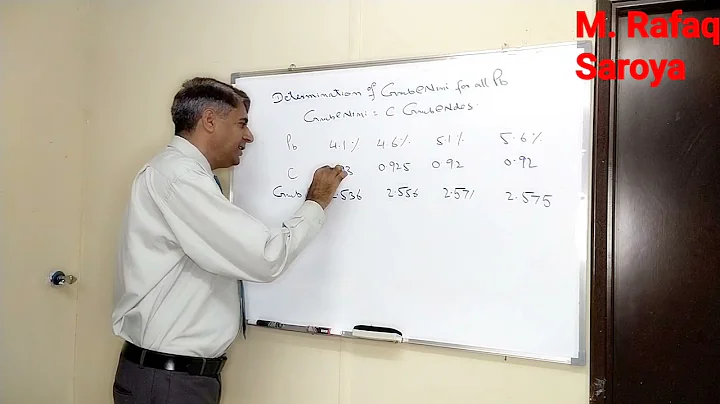 M. Rafaq
Saroya
Determination of Gmb@Nini for all Pb
Gmb@Nini = C Gmb@Ndes.
Pb 4.1% 4.6% 5.1% 5.6%
C 0.925 0.92 0.92
Gmb 2.536 2.556 2.571 2.575